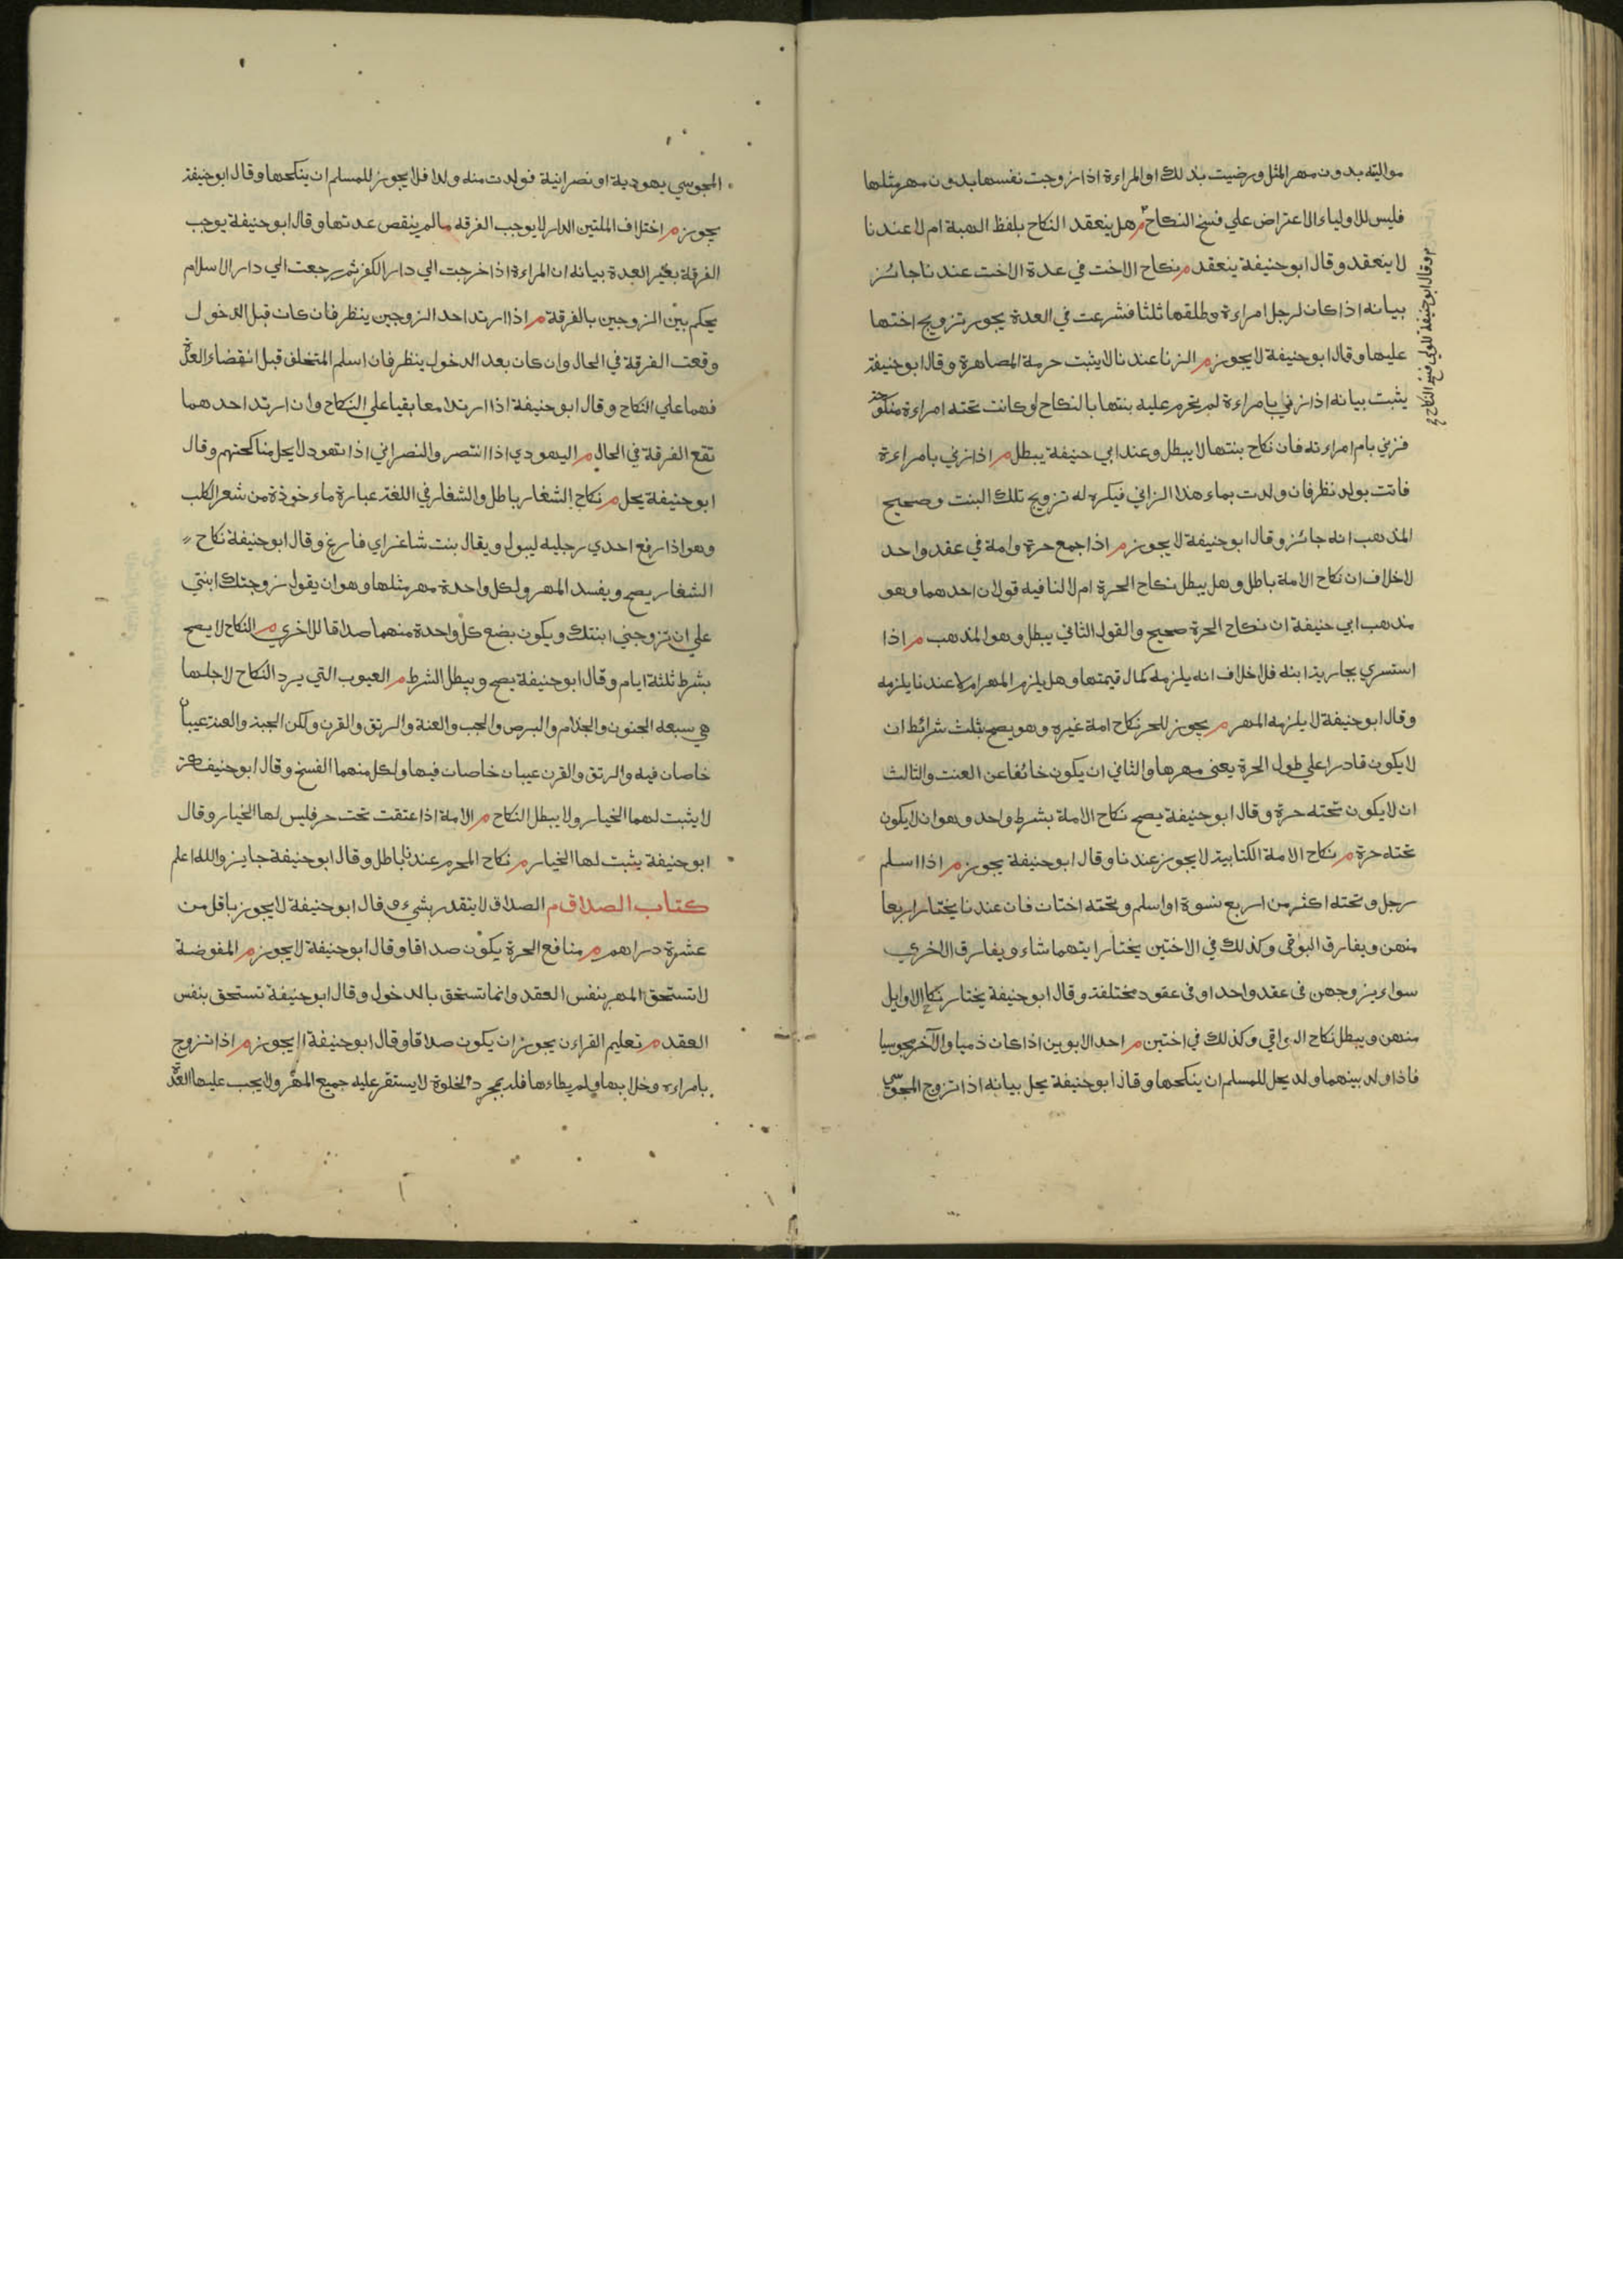 مواليته بدون مهر المثل ورضيت بذلك او المراءة اذا زوجت نفسها بدون مهر مثلها
فليس للاولياء الاعتراض علي فسخ النكاح م هل ينعقد النكاح بلفظ الهبة ام لا عندنا
لا ينعقد وقال ابوحنيفة ينعقد م نكاح الاخت في عدة الاخت عندنا جائز
بيانه اذا كان لرجل امراءة وطلقها ثلثا فشرعت في العدة يجوز تزويج اختها
عليها وقال ابوحنيفة لا يجوز م الزنا عندنا لا يثبت حرمة المصاهرة وقال ابوحنيفة
يثبت بيانه اذا زني بامراءة لم يحرم عليه بنتها بالنكاح او كانت تحته امراءة منكوحة
فزني بام امراءته فان نكاح بنتها لا يبطل وعند ابي حنيفة يبطل م اذا زني بامراءة
فاتت بولد نظر فان ولدت بماء هذا الزاني فيكره له تزويج تلك البنت وصحيح
المذهب انه جائز وقال ابوحنيفة لا يجوز م اذا جمع حرة وامة في عقد واحد
لا خلاف ان نكاح الامة باطل وهل يبطل نكاح الحرة ام لا لنا فيه قولان احدهما وهو
مذهب ابي حنيفة ان نكاح الحرة صحيح والقول الثاني يبطل وهو المذهب م اذا
استسري بجارية ابنه فلا خلاف انه يلزمه كمال قيمتها وهل يلزم المهر ام لا عندنا يلزمه
وقال ابوحنيفة لا يلزمه المهر م يجوز للحر نكاح امة غيره وهو يصح بثلث شرائط ان
لا يكون قادرا علي طول الحرة يعني مهرها والثاني ان يكون خائفا عن العنت والثالث
ان لا يكون تحته حرة وقال ابوحنيفة يصح نكاح الامة بشرط واحد وهو ان لا يكون
تحته حرة م نكاح الامة الكتابية لا يجوز عندنا وقال ابوحنيفة يجوز م اذا اسلم
رجل وتحته اكثر من اربع نسوة او اسلم وتحته اختان فان عندنا يختار اربعا
منهن ويفارق البوقي وكذلك في الاختين يختار ايتهما شاء ويفارق الاخري
سواء يزوجهن في عقد واحد او في عقود مختلفة وقال ابوحنيفة يختار نكاح الاوايل
منهن ويبطل نكاح البواقي وكذلك في اختين م احد الابوين اذا كان ذميا والآخر مجوسيا
فاذا ولد بينهما ولد يحل للمسلم ان ينكحها وقال ابوحنيفة يحل بيانه اذا تزوج المجوسي
م وقال ابوحنيفة للولي فسخ النكاح
المجوسي يهودية او نصرانية فولدت منه ولدا فلا يجوز للمسلم ان ينكحها وقال ابوحنيفة
يجوز م اختلاف الملتين الدار لا يوجب الفرقه مالم ينقص عدتها وقال ابوحنيفة يوجب
الفرقة بغير العدة بيانه ان المراءة اذا خرجت الي دار الكفر ثم رجعت الي دار الاسلام
يحكم بين الزوجين بالفرقة م اذا ارتد احد الزوجين ينظر فان كان قبل الدخول
وقعت الفرقة في الحال وان كان بعد الدخول ينظر فان اسلم المتخلف قبل انقضاء العدة
فهما علي النكاح وقال ابوحنيفة اذا ارتدا معا بقيا علي النكاح وان ارتد احدهما
تقع الفرقة في الحال م اليهودي اذا انتصر والنصراني اذا تهود لا يحل مناكحتهم وقال
ابوحنيفة يحل م نكاح الشغار باطل والشغار في اللغة عبارة ماءخوذة من شعر الكلب
وهو اذا رفع احدي رجليه ليبول ويقال بنت شاغر اي فارغ وقال ابوحنيفة نكاح
الشغار يصح ويفسد المهر ولكل واحدة مهر مثلها وهو ان يقول زوجتك ابنتي
علي ان تزوجني ابنتك ويكون بضع كل واحدة منهما صداقا للاخري م النكاح لا يصح
بشرط ثلثة ايام وقال ابوحنيفة يصح ويبطل الشرط م العيوب التي يرد النكاح لاجلها
هي سبعه الجنون والجذام والبرص والجب والعنة والرتق والقرن ولكن الجبة والعنة عيبان
خاصان فيه والرتق والقرن عيبان خاصان فيها ولكل منهما الفسخ وقال ابوحنيفة
لا يثبت لهما الخيار ولا يبطل النكاح م الامة اذا عتقت تحت حر فليس لها الخيار وقال
ابوحنيفة يثبت لها الخيار م نكاح المحرم عندنا باطل وقال ابوحنيفة جايز والله اعلم
كتاب الصداق م الصداق لا يتقدر بشيء وقال ابوحنيفة لا يجوز باقل من
عشرة دراهم م منافع الحرة يكون صداقا وقال ابوحنيفة لا يجوز م المفوضة
لا تستحق المهر بنفس العقد وانما تستحق بالدخول وقال ابوحنيفة تستحق بنفس
العقد م تعليم القراءن يجوز ان يكون صداقا وقال ابوحنيفة لا يجوز م اذا تزوج
بامراءه وخلا بها ولم يطاءها فلد بمجرد الخلوة لا يستقر عليه جميع المهر ولا يجب عليها العدة